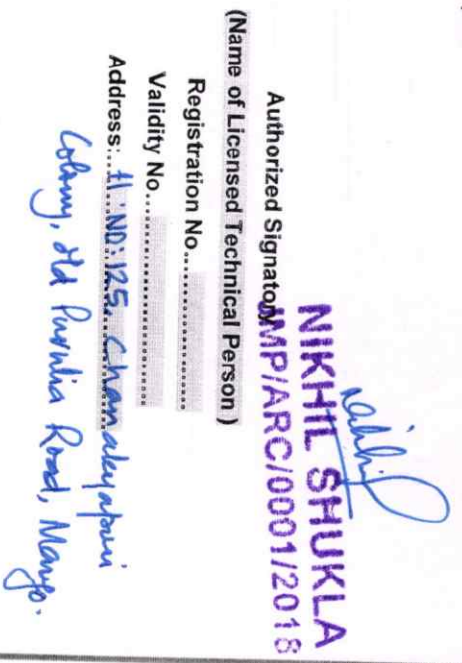 Nikhil
NIKHIL SHUKLA
JMP/ARC/0001/2018
Authorized Signatory
(Name of Licensed Technical Person)
Registration No..................
Validity No.......................
Address: H'NO:125, Chanakyapuri
Colony, Old Purulia Road, Mango.